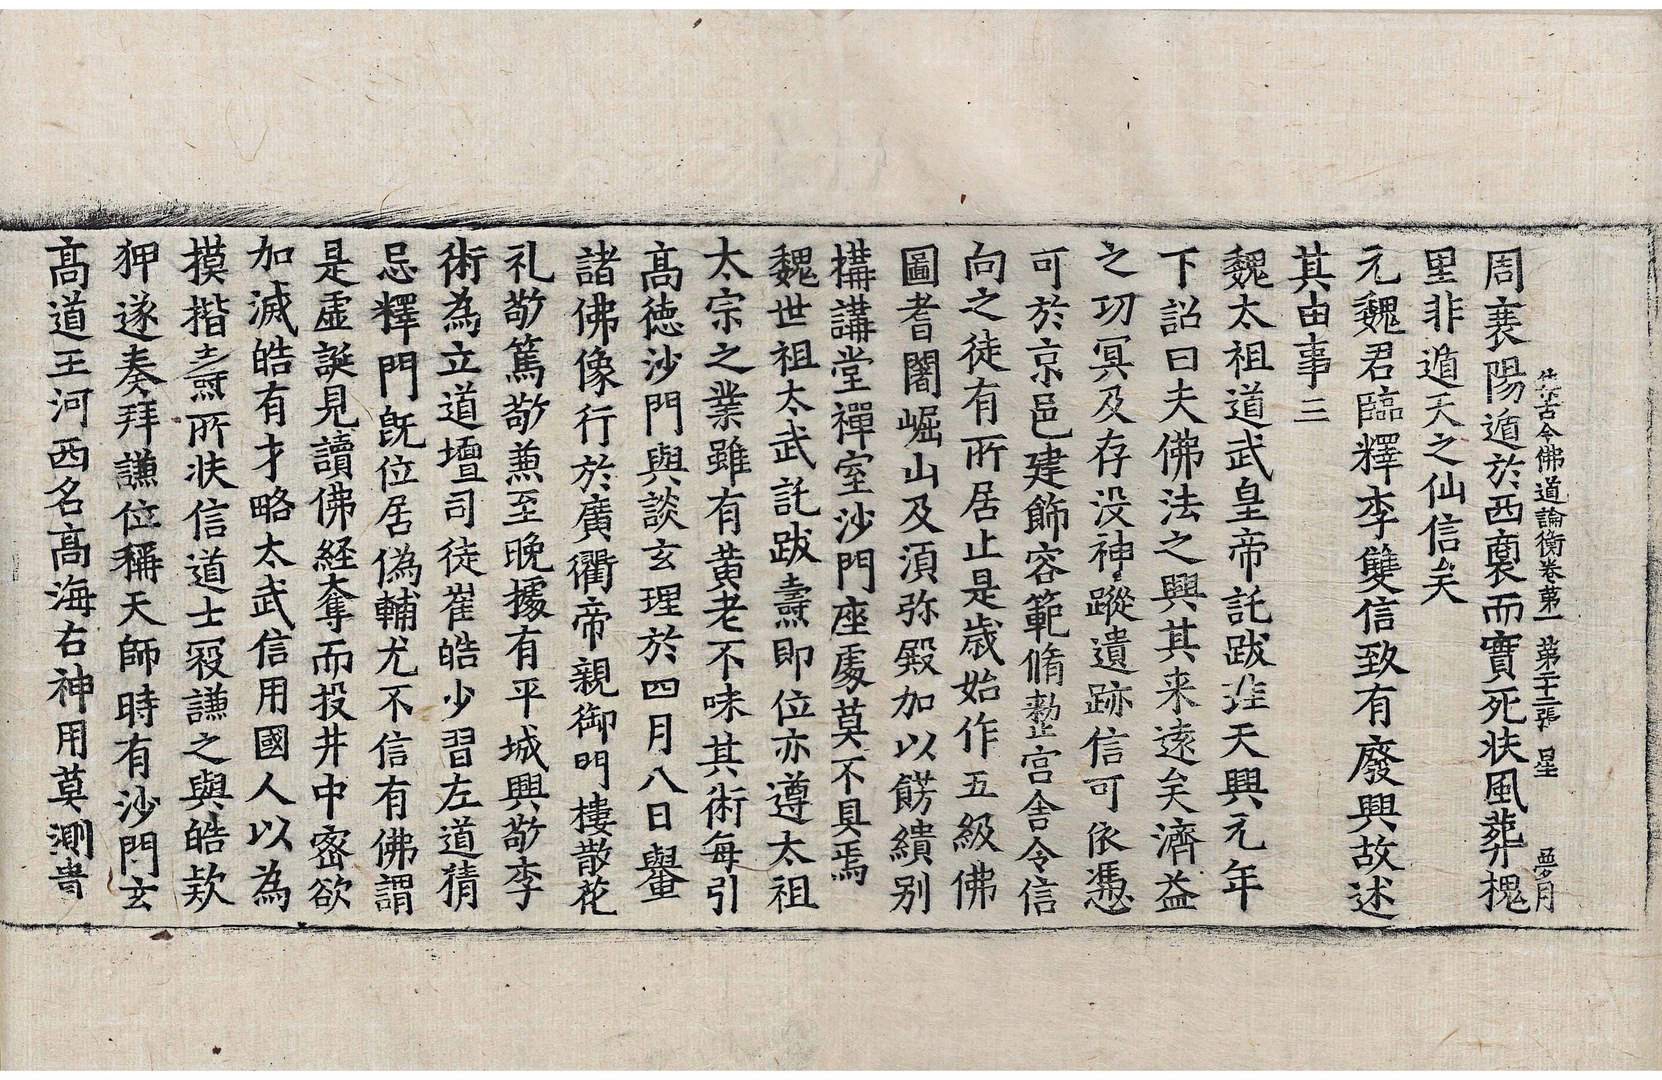 集古今佛道論衡卷第一 第二十二張 星 夢月
周襄陽遁於西裔而實死扶風葬槐
里非遁天之仙信矣
元魏君臨釋李雙信致有廢興故述
其由事三
魏太祖道武皇帝託跋珪天興元年
下詔曰夫佛法之興其来遠矣濟益
之功冥及存没神蹤遺跡信可依憑
可於京邑建飾容範脩整宫舍令信
向之徒有所居止是歳始作五級佛
圖耆闍崛山及湏弥殿加以餝繢别
構講堂禪室沙門座處莫不具焉
魏世祖太武託跋燾即位亦遵太祖
太宗之業雖有黄老不味其術每引
高徳沙門與談玄理於四月八日轝
諸佛像行於廣衢帝親御門樓散花
礼敬篤敬兼至晚據有平城興敬李
術為立道壇司徒崔皓少習左道猜
忌釋門旣位居偽輔尤不信有佛謂
是虚誕見讀佛経奪而投井中密欲
加滅皓有才略太武信用國人以為
摸揩燾所扶信道士宼謙之與皓欵
狎遂奏拜謙位稱天師時有沙門玄
高道王河西名高海右神用莫測貴